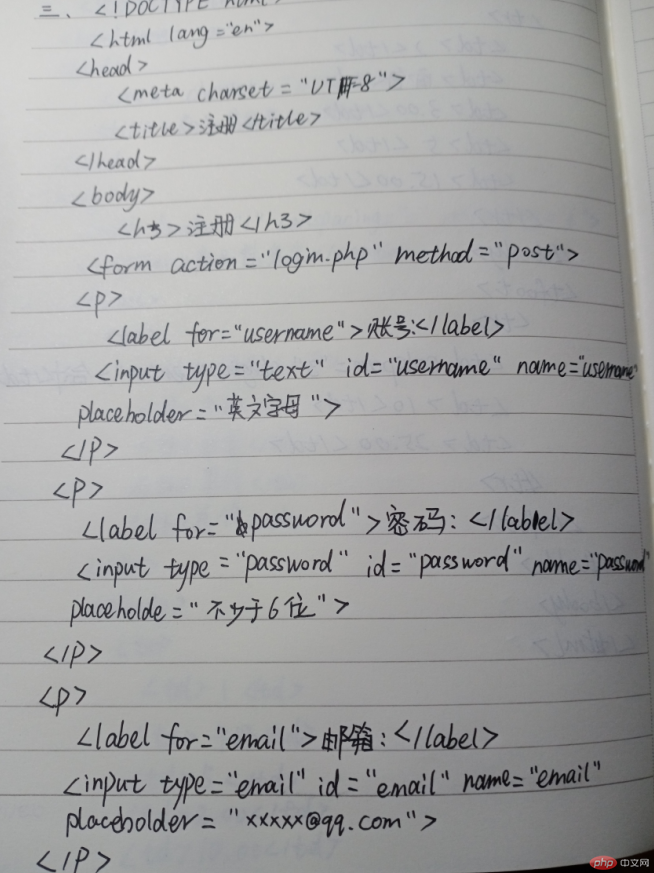 三、<!DOCTYPE html>
<html lang="en">
<head>
<meta charset="UTF-8">
<title>注册</title>
</head>
<body>
<h3>注册</h3>
<form action="login.php" method="post">
<p>
<label for="username">账号:</label>
<input type="text" id="username" name="username"
placeholder="英文字母">
</p>
<p>
<label for="password">密码:</lablel>
<input type="password" id="password" name="password"
placeholde="不少于6位">
</p>
<p>
<label for="email">邮箱:</label>
<input type="email" id="email" name="email"
placeholder="xxxxx@qq.com">
</p>
php 中文网